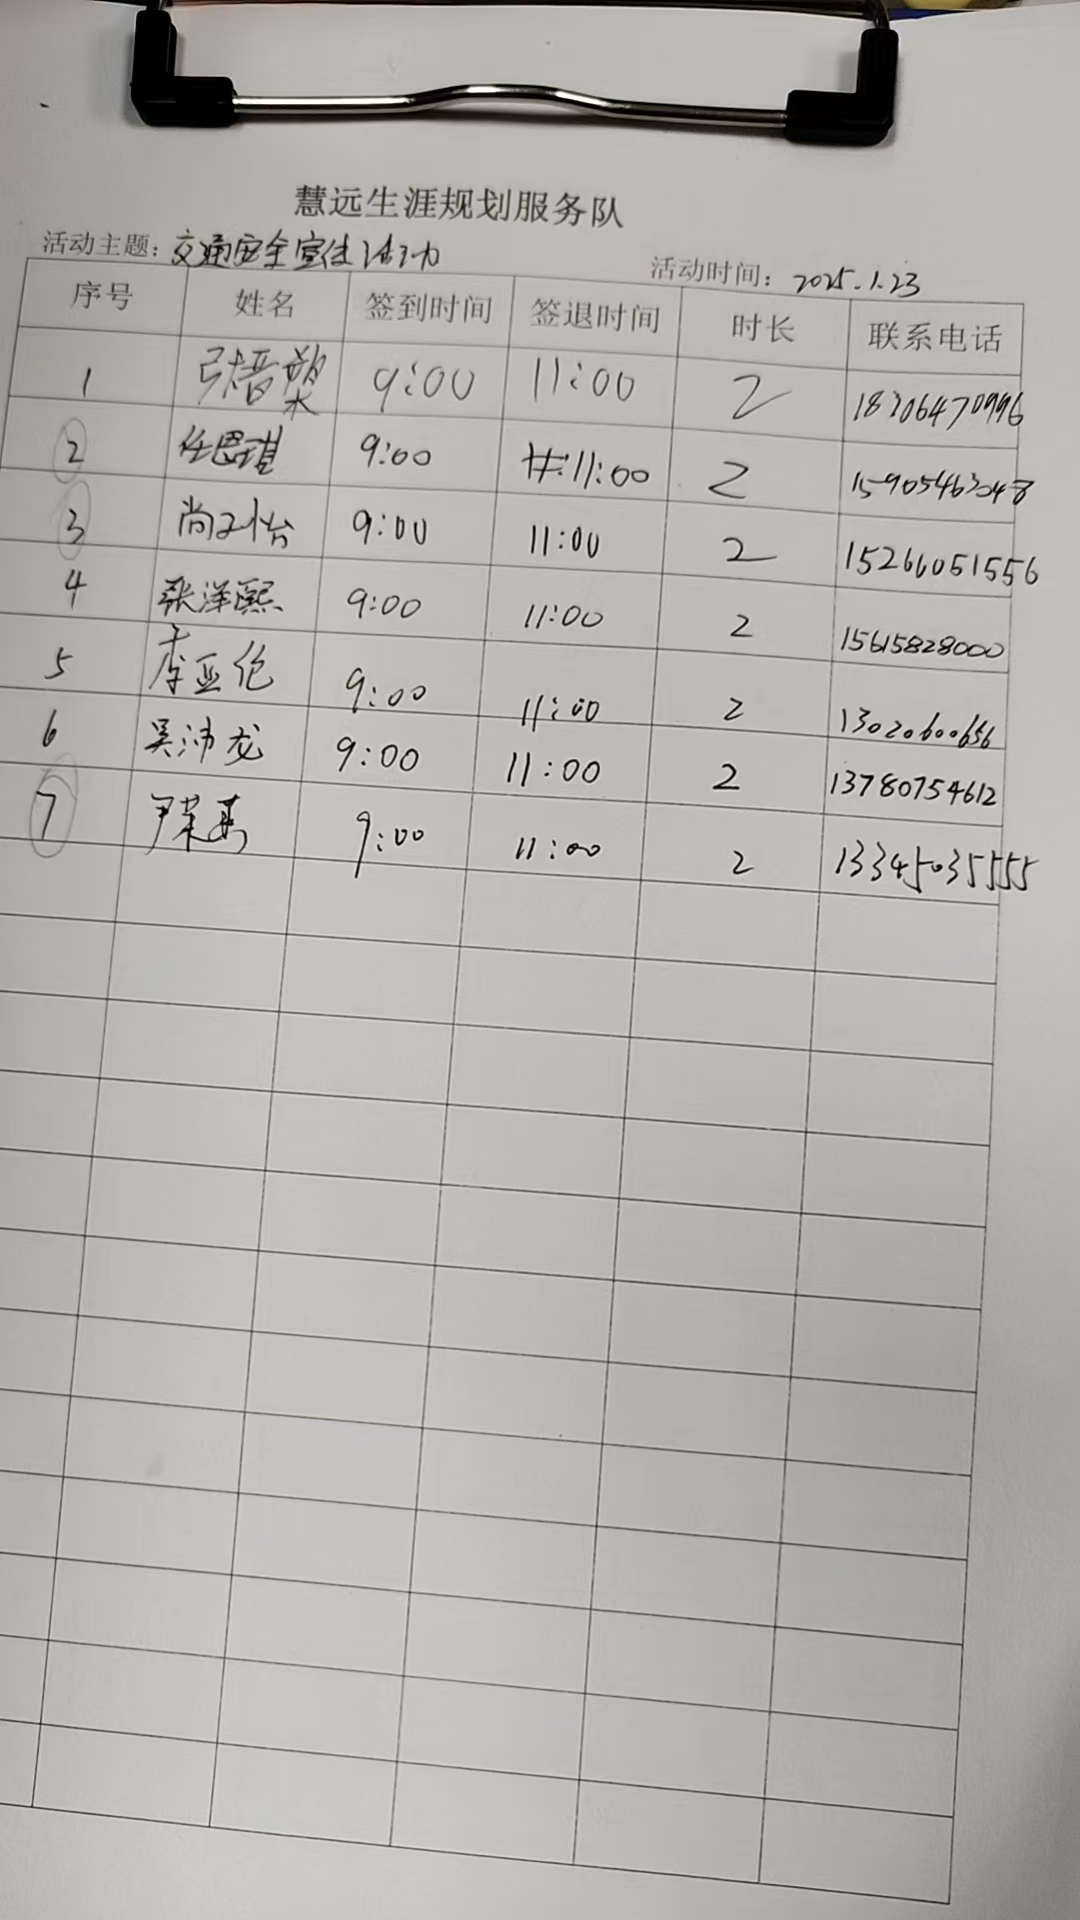 慧远生涯规划服务队
活动主题：交通安全宣传活动 活动时间：2025.1.23
序号 姓名 签到时间 签退时间 时长 联系电话
1 9:00 11:00 2 18306470996
2 任恩琪 9:00 11:00 2 15905463048
3 尚子怡 9:00 11:00 2 15266051556
4 张洋熙 9:00 11:00 2 15615828000
5 李亚伦 9:00 11:00 2 13020600656
6 吴沛龙 9:00 11:00 2 13780754612
7 尹荣 9:00 11:00 2 13345035555